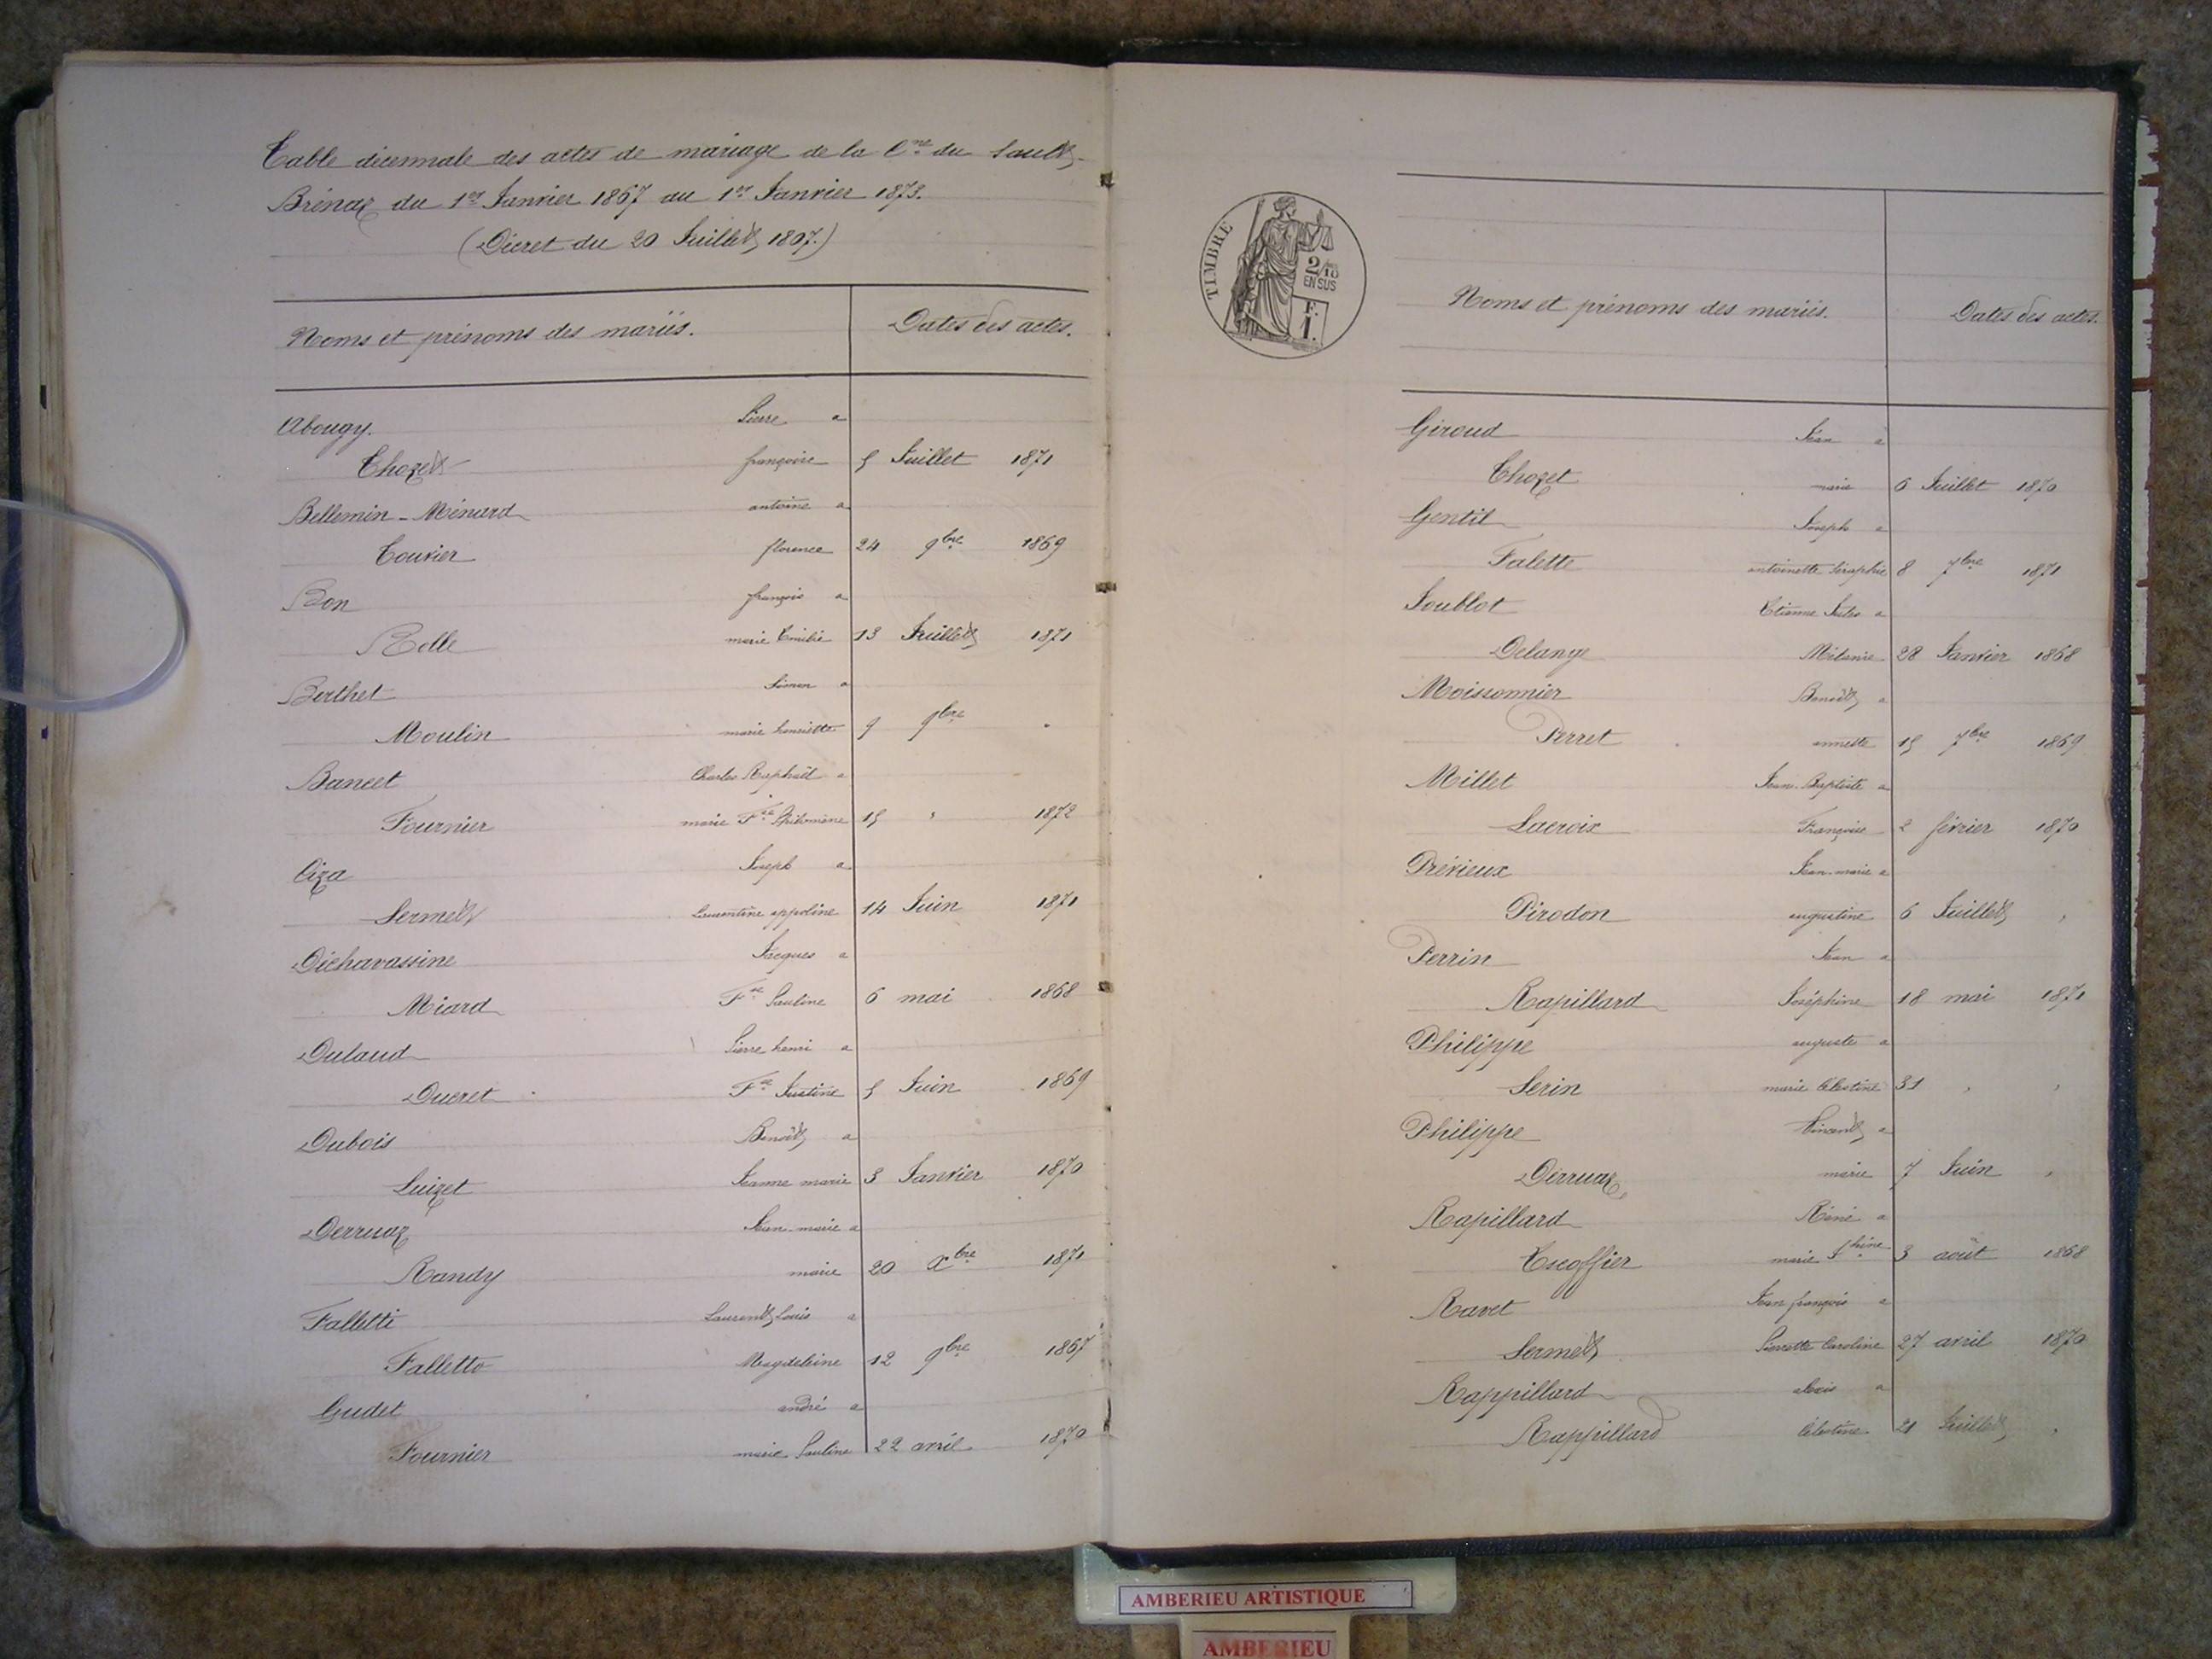 Table décennale des actes de mariage de la Cne du Sault-
Brénaz du 1er Janvier 1867 au 1er Janvier 1873.
(Décret du 20 Juillet 1807.)
Noms et prénoms des mariés. Dates des actes.
Abougy. Pierre a
Chozet françoise 5 Juillet 1871
Bellemin-Ménard antoine a
Couvier florence 24 9bre 1869
Bon françois a
Rolle marie Emilie 13 Juillet 1871
Berthet Simon a
Moulin marie henriette 9 9bre "
Bancet Charles Raphaël a
Fournier marie Fse Philomène 15 " 1872
Ciza Joseph a
Sermet Laurentine appoline 14 Juin 1871
Déchavassine Jacques a
Miard Fse Pauline 6 mai 1868
Dulaud Pierre henri a
Ducret Fse Justine 5 Juin 1869
Dubois Benoît a
Luizet Jeanne marie 3 Janvier 1870
Derruaz Jean-marie a
Randy marie 20 Xbre 1871
Falletti Laurent Louis a
Falletto Magdeleine 12 9bre 1867
Gudet andré a
Fournier marie Pauline 22 avril 1870
TIMBRE
2/10
EN SUS
F.
1.
Noms et prénoms des mariés. Dates des actes.
Giroud Jean a
Chozet marie 6 Juillet 1870
Gentil Joseph a
Falette antoinette Séraphie 8 7bre 1871
Joublot Etienne Jules a
Delange Mélanie 28 Janvier 1868
Moissonnier Benoît a
Perret annette 15 7bre 1869
Millet Jean-Baptiste a
Lacroix Françoise 2 février 1870
Prévieux Jean-marie a
Pirodon augustine 6 Juillet "
Perrin Jean a
Rapillard Joséphine 18 mai 1871
Philippe auguste a
Serin marie Célestine 31 " "
Philippe Vincent a
Derruaz marie 7 Juin "
Rapillard Réné a
Escoffier marie Jphine 3 août 1868
Ravet Jean françois a
Sermet Pierrette Caroline 27 avril 1870
Rappillard alexis a
Rappillard Célestine 21 Juillet "
AMBERIEU ARTISTIQUE
AMBERIEU